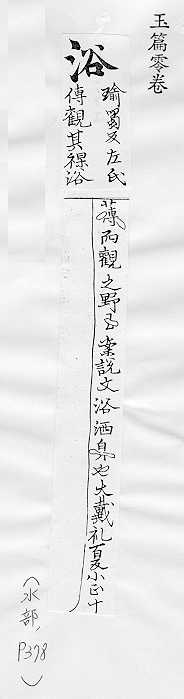 玉篇零卷
浴
瑜蜀反左氏
傳觀其裸浴
薄而觀之野王案說文浴洒身也大戴礼夏小正十
(水部, P378)